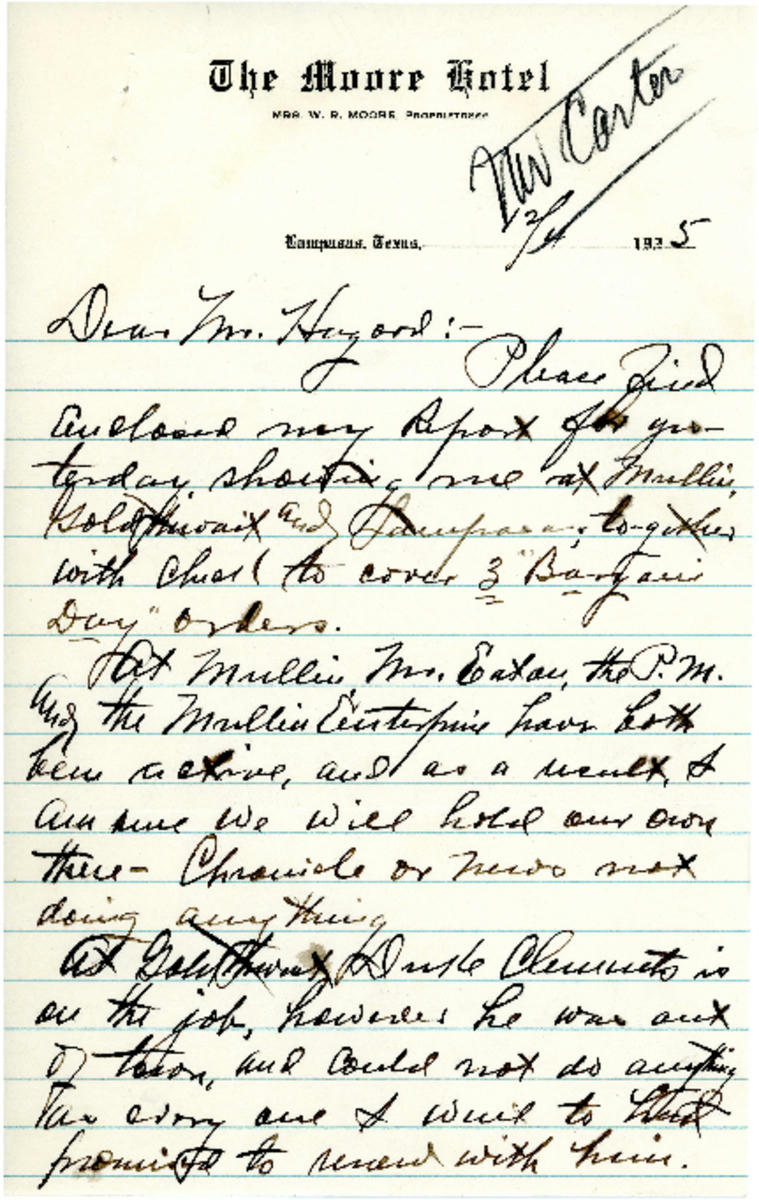 The Moore Hotel
MRS. W. R. MOORE, PROPRIETRESS
Mr Carter
2/4
Lampasas, Texas, 1935
Dear Mr. Hagard:-
Please Find
Enclosed my Report for yes-
terday, showing me at Mullin,
Goldthwait and Lampasas, together
with check to cover 3 "Bargain
Day" orders.
At Mullin Mr. Eaton, the P.M.
and the Mullin Enterprise have both
been active, and as a result, I
am sure we will hold our own
there - Chronicle or News not
doing anything
At Goldthwait Duke Clements is
on the job, however he was out
of town, and could not do anything
every one I went to
promised to renew with him.